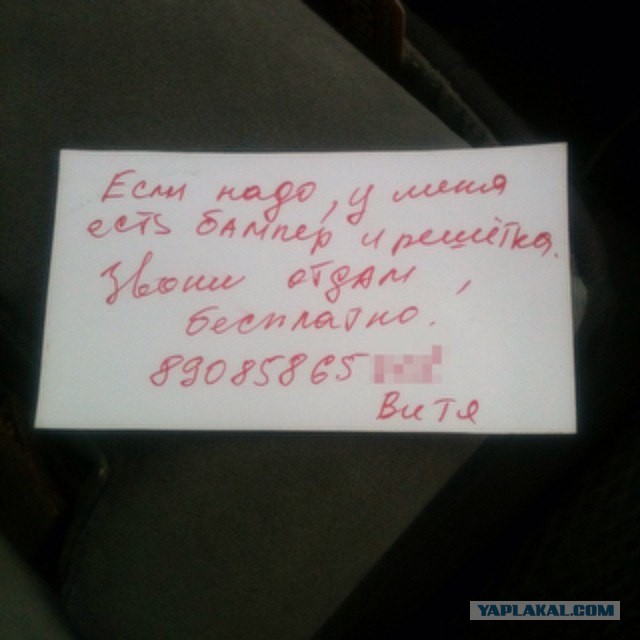 Если надо, у меня
есть бампер и решётка.
Звони отдам,
бесплатно.
89085865
Витя
YAPLAKAL.COM